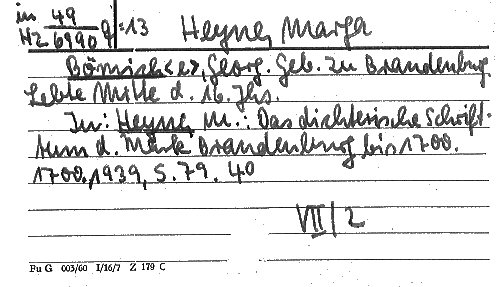 in 49
HZ 6990 q :13 Heyne, Marga
Bömisch<e>, Georg. Geb. zu Brandenburg.
Lebte Mitte d. 16. Jhs.
In: Heyne, M.: Das dichterische Schrift-
tum d. Mark Brandenburg bis 1700.
1700, 1939, S. 79. 40
VII/2
Fu G 003/60 I/16/7 Z 179 C